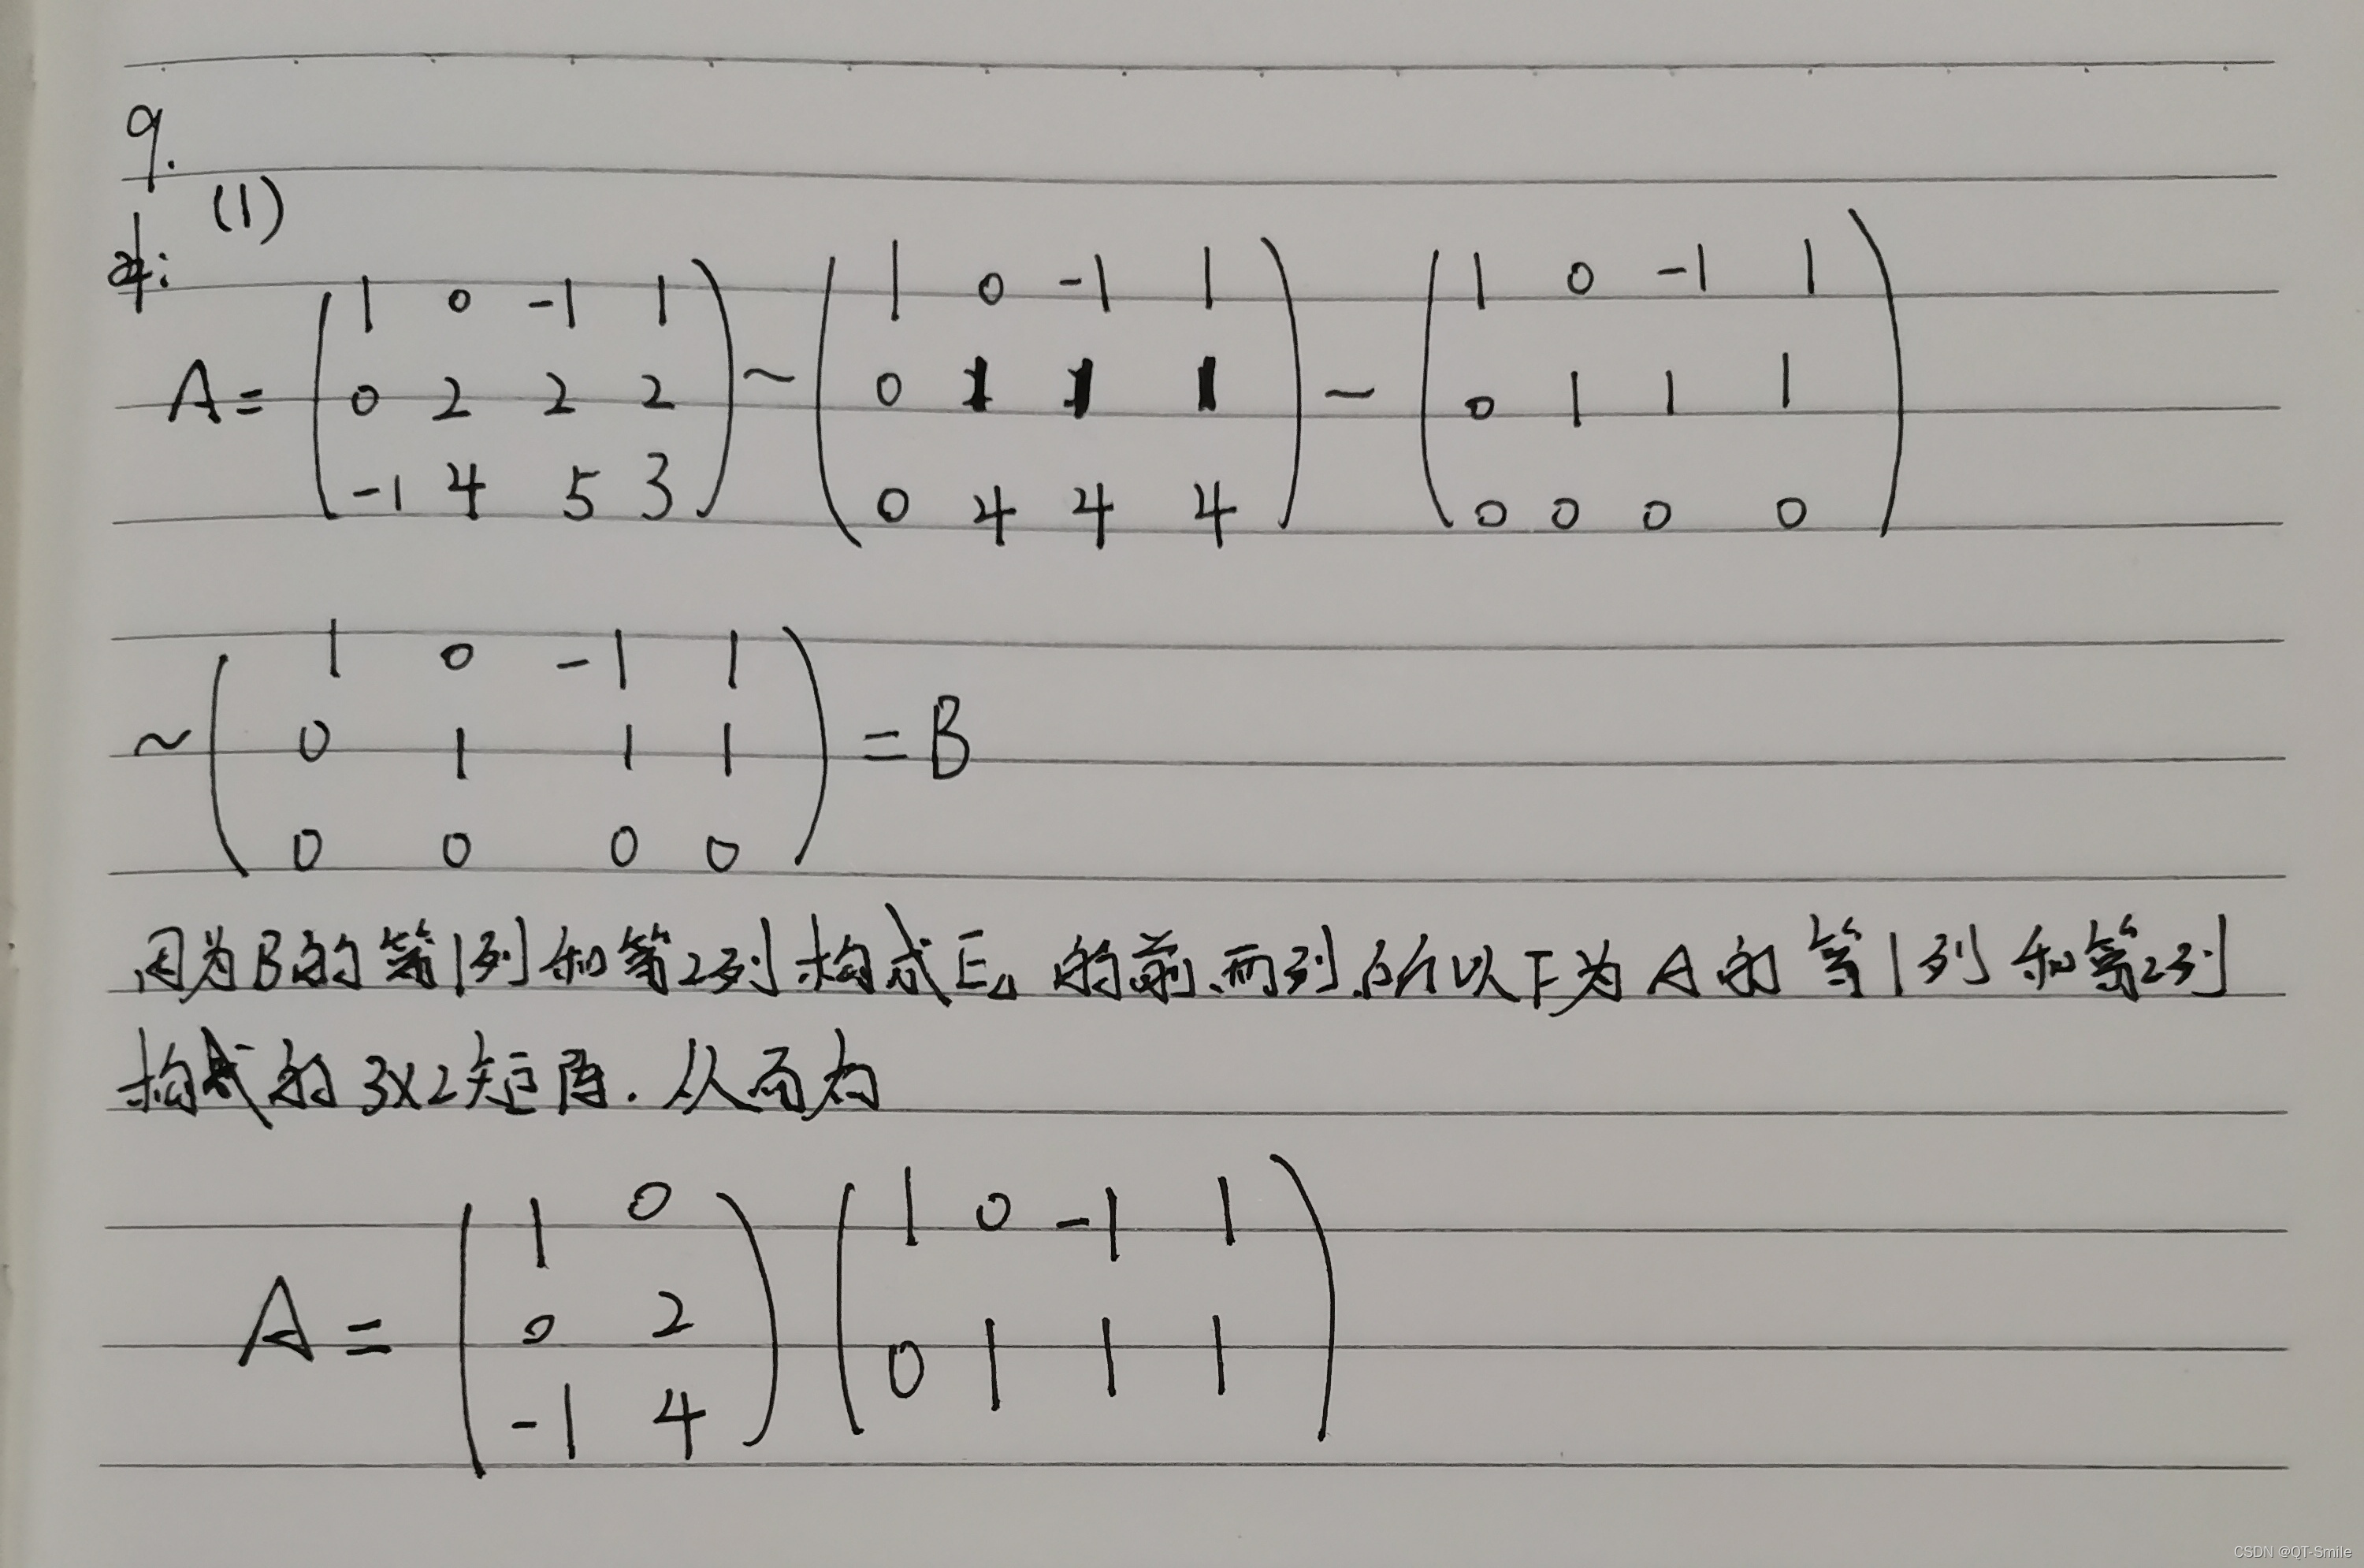 9.
(1)
解:
A = ( 1 0 -1 1 ; 0 2 2 2 ; -1 4 5 3 ) ~ ( 1 0 -1 1 ; 0 1 1 1 ; 0 4 4 4 ) ~ ( 1 0 -1 1 ; 0 1 1 1 ; 0 0 0 0 )
~ ( 1 0 -1 1 ; 0 1 1 1 ; 0 0 0 0 ) = B
因为B的第1列和第2列构成 的前两列,所以F为A的第1列和第2列
构成的3×2矩阵.从而有
A = ( 1 0 ; 0 2 ; -1 4 ) ( 1 0 -1 1 ; 0 1 1 1 )
CSDN @QT-Smile